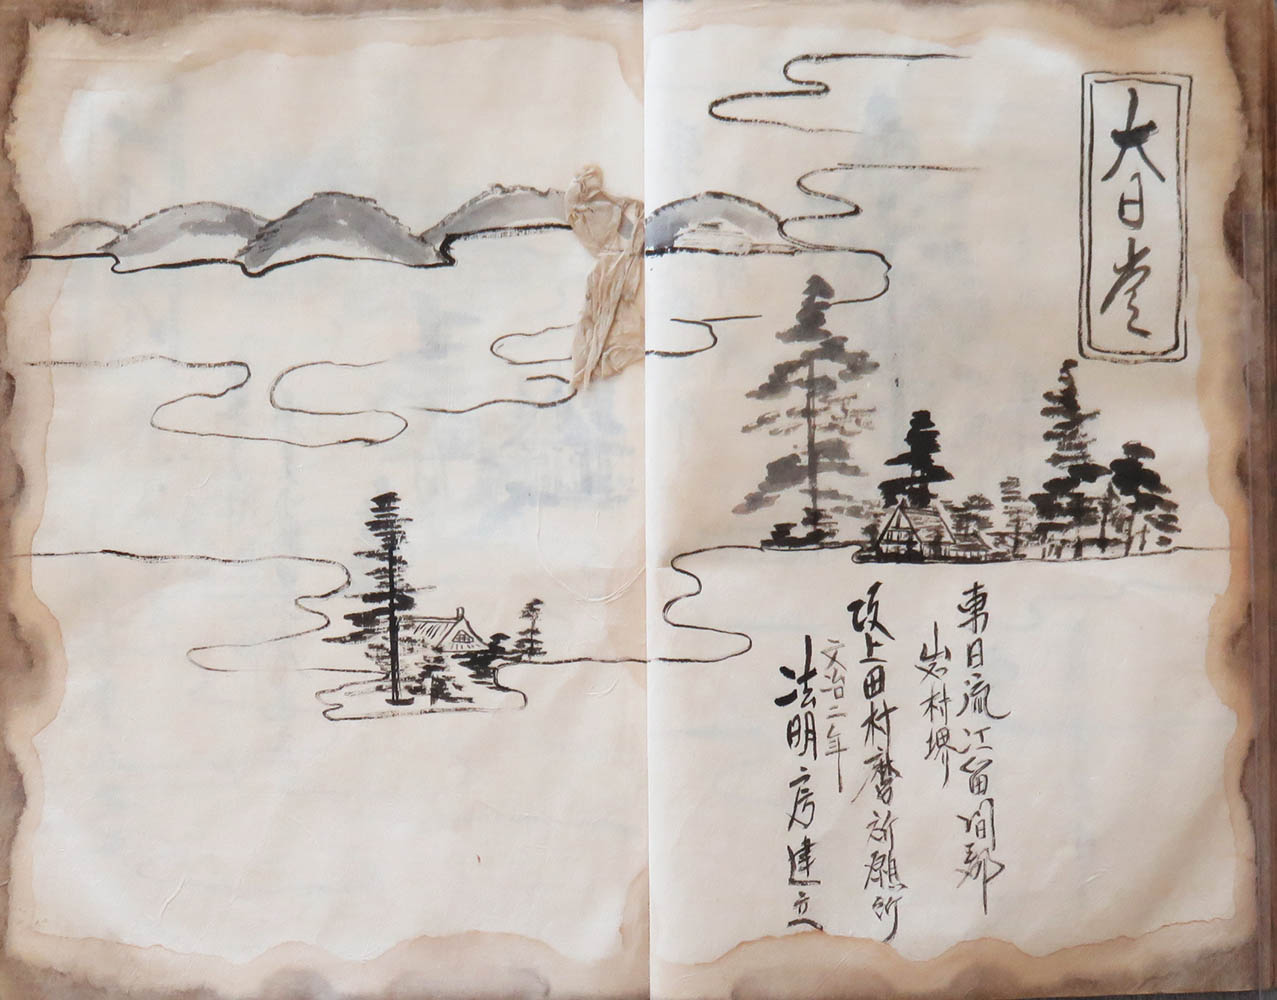 大日堂
東日流江留間郡
岩村堺
坂上田村麿祈願所
文治二年
法明房建立